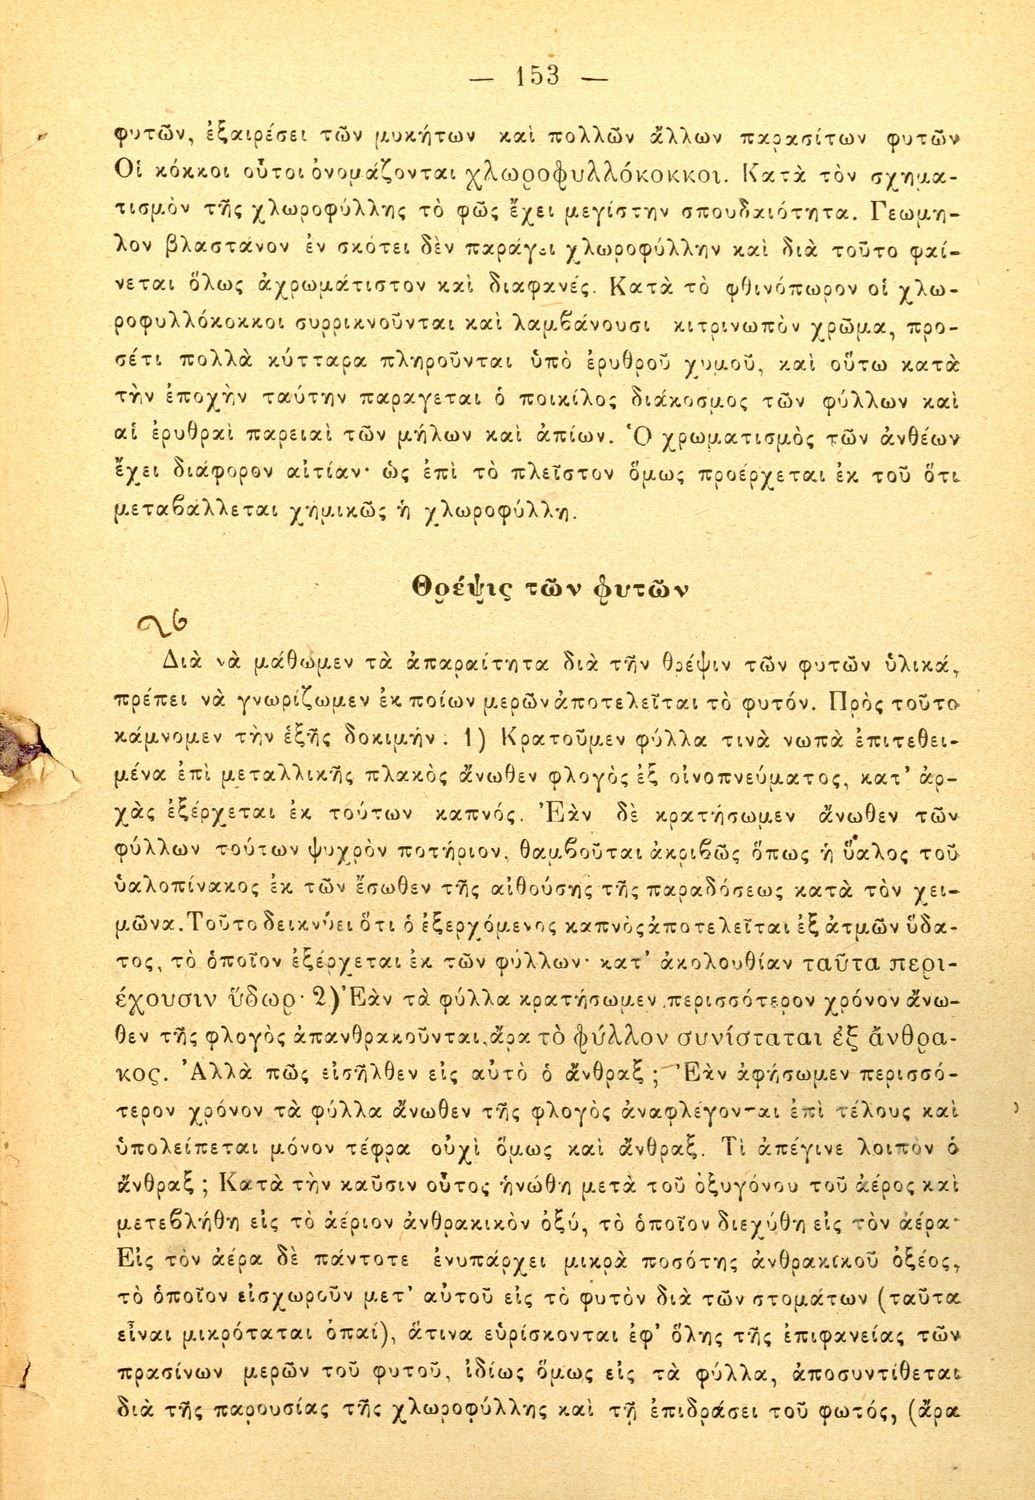 — 153 —
φυτῶν, ἐξαιρέσει τῶν μυκήτων καὶ πολλῶν ἄλλων παρασίτων φυτῶν
Οἱ κόκκοι οὗτοι ὀνομάζονται χλωροφυλλόκοκκοι. Κατὰ τὸν σχημα-
τισμὸν τῆς χλωροφύλλης τὸ φῶς ἔχει μεγίστην σπουδαιότητα. Γεωμη-
λον βλαστάνον ἐν σκότει δὲν παράγει χλωροφύλλην καὶ διὰ τοῦτο φαί-
νεται ὅλως ἀχρωμάτιστον καὶ διαφανές. Κατὰ τὸ φθινόπωρον οἱ χλω-
ροφυλλόκοκκοι συρρικνοῦνται καὶ λαμβάνουσι κιτρινωπὸν χρῶμα, προ-
σέτι πολλὰ κύτταρα πληροῦνται ὑπὸ ἐρυθροῦ χυμοῦ, καὶ οὕτω κατὰ
τὴν ἐποχὴν ταύτην παραγεται ὁ ποικίλος διάκοσμος τῶν φύλλων καὶ
αἱ ἐρυθραὶ παρειαὶ τῶν μήλων καὶ ἀπίων. Ὁ χρωματισμὸς τῶν ἀνθέων
ἔχει διάφορον αἰτίαν· ὡς ἐπὶ τὸ πλεῖστον ὅμως προέρχεται ἐκ τοῦ ὅτι
μεταβάλλεται χημικῶς ἡ χλωροφύλλη.
Θρέψις τῶν φυτῶν
26
Διὰ νὰ μάθωμεν τὰ ἀπαραίτητα διὰ τὴν θρέψιν τῶν φυτῶν ὑλικά,
πρέπει νὰ γνωρίζωμεν ἐκ ποίων μερῶν ἀποτελεῖται τὸ φυτόν. Πρὸς τοῦτο
κάμνομεν τὴν ἑξῆς δοκιμήν. 1) Κρατοῦμεν φύλλα τινὰ νωπὰ ἐπιτεθει-
μένα ἐπὶ μεταλλικῆς πλακὸς ἄνωθεν φλογὸς ἐξ οἰνοπνεύματος, κατ’ ἀρ-
χὰς ἐξέρχεται ἐκ τούτων καπνός. Ἐὰν δὲ κρατήσωμεν ἄνωθεν τῶν
φύλλων τούτων ψυχρὸν ποτήριον, θαμβοῦται ἀκριβῶς ὅπως ἡ ὕαλος τοῦ
ὑαλοπίνακος ἐκ τῶν ἔσωθεν τῆς αἰθούσης τῆς παραδόσεως κατὰ τὸν χει-
μῶνα. Τοῦτο δεικνύει ὅτι ὁ ἐξερχόμενος καπνὸς ἀποτελεῖται ἐξ ἀτμῶν ὕδα-
τος, τὸ ὁποῖον ἐξέρχεται ἐκ τῶν φύλλων· κατ’ ἀκολουθίαν ταῦτα περι-
έχουσιν ὕδωρ· 2) Ἐὰν τὰ φύλλα κρατήσωμεν περισσότερον χρόνον ἄνω-
θεν τῆς φλογὸς ἀπανθρακοῦνται, ἄρα τὸ φύλλον συνίσταται ἐξ ἄνθρα-
κος. Ἀλλὰ πῶς εἰσῆλθεν εἰς αὐτὸ ὁ ἄνθραξ ; Ἐὰν ἀφήσωμεν περισσό-
τερον χρόνον τὰ φύλλα ἄνωθεν τῆς φλογὸς ἀναφλέγονται ἐπὶ τέλους καὶ
ὑπολείπεται μόνον τέφρα οὐχὶ ὅμως καὶ ἄνθραξ. Τὶ ἀπέγινε λοιπὸν ὁ
ἄνθραξ ; Κατὰ τὴν καῦσιν οὗτος ἡνώθη μετὰ τοῦ ὀξυγόνου τοῦ ἀέρος καὶ
μετεβλήθη εἰς τὸ ἀέριον ἀνθρακικὸν ὀξύ, τὸ ὁποῖον διεχύθη εἰς τὸν ἀέρα·
Εἰς τὸν ἀέρα δὲ πάντοτε ἐνυπάρχει μικρὰ ποσότης ἀνθρακικοῦ ὀξέος,
τὸ ὁποῖον εἰσχωροῦν μετ’ αὐτοῦ εἰς τὸ φυτὸν διὰ τῶν στομάτων (ταῦτα
εἶναι μικρόταται ὀπαί), ἅτινα εὑρίσκονται ἐφ’ ὅλης τῆς ἐπιφανείας τῶν
πρασίνων μερῶν τοῦ φυτοῦ, ἰδίως ὅμως εἰς τὰ φύλλα, ἀποσυντίθεται
διὰ τῆς παρουσίας τῆς χλωροφύλλης καὶ τῇ ἐπιδράσει τοῦ φωτός, (ἄρα